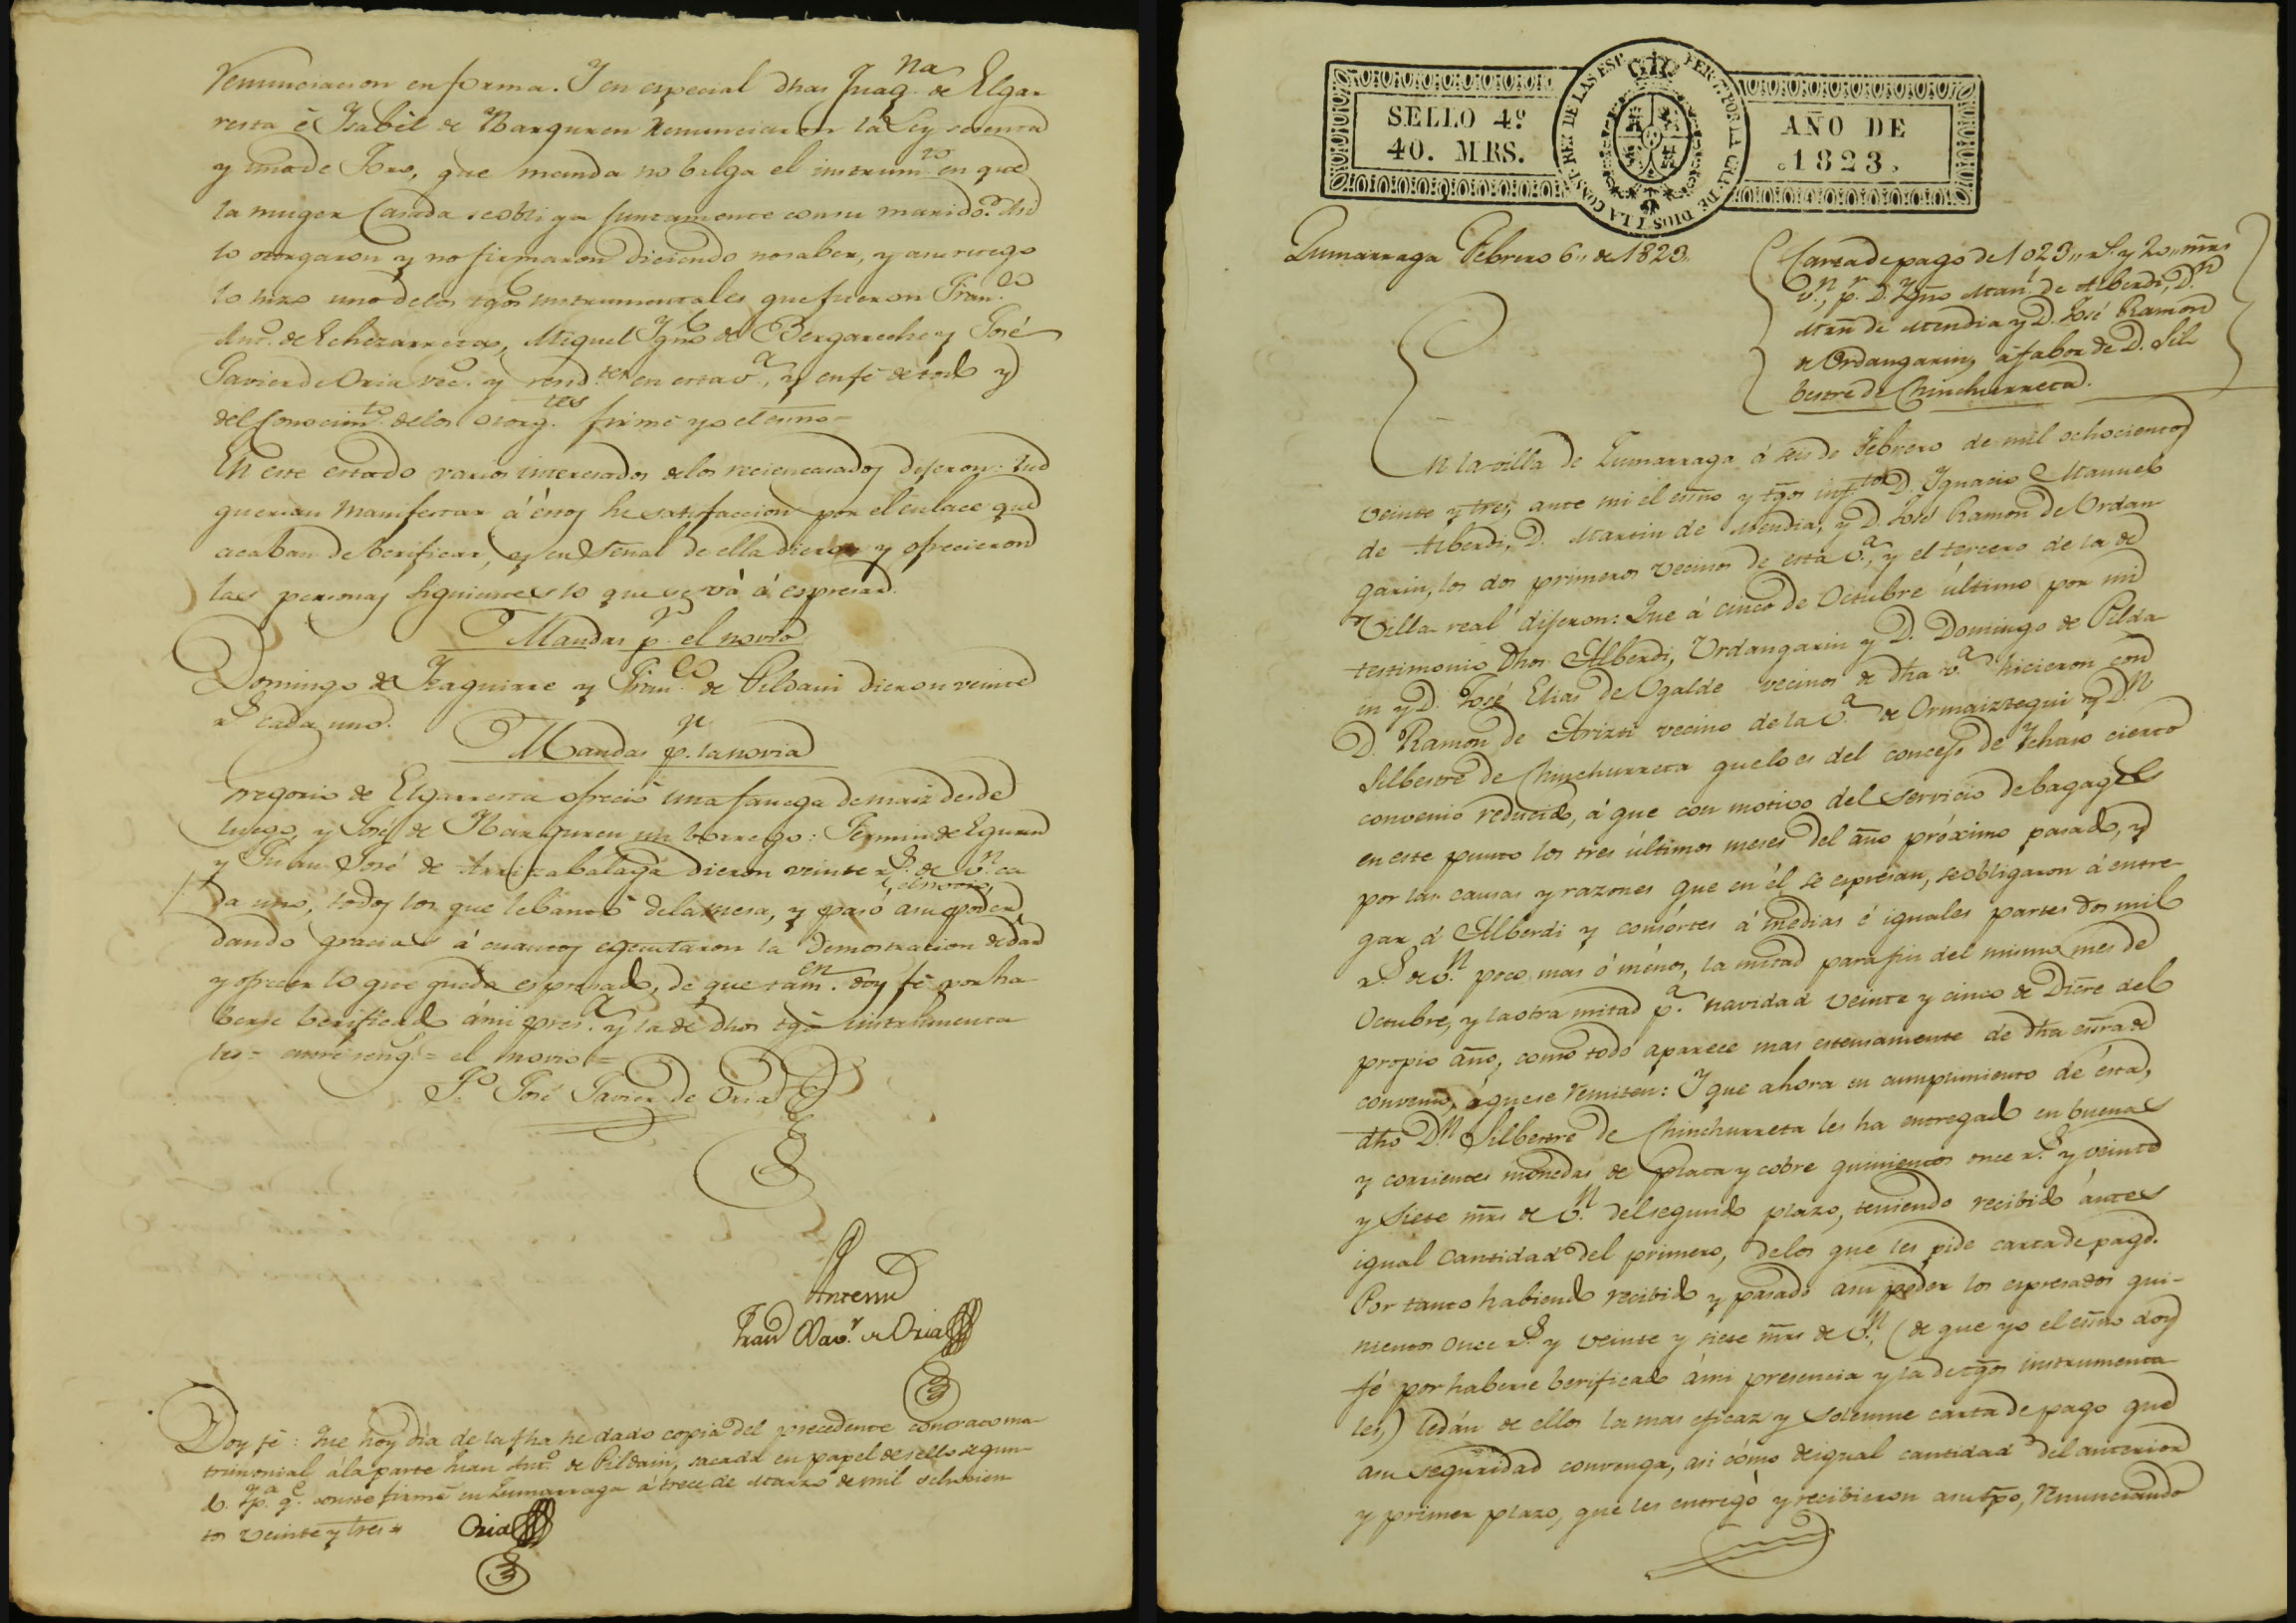 renunciacion en forma. Y en especial dhas Juaq.na de Elgar-
resta é Ysabel de Barguren renunciaron la Ley sesenta
y una de Toro, que manda no balga el instrum.to en que
la muger casada se obliga juntamente con su marido. Asi
lo otorgaron y no firmaron diciendo no saber, y a su ruego
lo hizo uno de los tgos instrumentales que fueron Fran.co
Ant.o de Echezarreta, Miguel Ygn.o de Bergareche y José
Javier de Oria vec.s y resid.tes en esta v.a, y en fé de todo y
del conocim.to de los otorg.tes firmé yo el esno=
En este estado varios interesados de los recien casados dijeron: Que
querian manifestar á éstos su satisfaccion por el enlace que
acaban de berificar, y en señal de ella dieron y ofrecieron
las personas siguientes lo que se vá á expresar.
Mandas p.r el novio
Domingo de Yzaguirre y Fran.co de Pildain dieron veinte
r.s cada uno.
Mandas p.r la novia
Gregorio de Elgarresta ofreció una fanega de maiz desde
luego, y José de Barguren un borrego: Fermin de Eguren
y Juan José de Arrizabalaga dieron veinte r.s de v.n ca
da uno, todos los que lebantó el novio de la mesa, y pasó a su poder
dando gracias á cuantos egecutaron la demostracion de dar
y ofrecer lo que queda espresado, de que tam.en doy fé por ha-
berse berificado á mi pres.a y la de dhos tgos instrumenta
les= entre reng.s= el novio=
T.o José Javier de Oria
Antemi
Juan Bav.r de Oria
Doy fé: Que hoy dia de la fha he dado copia del precedente contrato ma-
trimonial á la parte Juan Ant.o de Pildain, sacada en papel de sello segun-
do. Y p.a q.e conste firmé en Zumarraga á trece de Marzo de mil ochocien
tos veinte y tres=
Oria
SELLO 4º
40. MRS.
FER. 7º POR LA G. DE DIOS Y LA CONST. REY DE LAS ESP.
AÑO DE
1823.
Zumarraga Febrero 6,, de 1823.
Carta de pago de 1023,, r.s y 20,, mrs
v.n, p.r D. Ygno Man.l de Alberdi, D.n
Mrn de Mendia y D. José Ramon
de Ordangarin, á fabor de D. Sil-
bestre de Chinchurreta.
En la villa de Zumarraga á seis de Febrero de mil ochocientos
veinte y tres, ante mi el esno y tgos inf.tos D. Ignacio Manuel
de Alberdi, D. Martin de Mendia, y D. José Ramon de Ordan-
garin, los dos primeros vecinos de esta v.a, y el tercero de la de
Villa-real dijeron: Que á cinco de Octubre último por mi
testimonio dhos Alberdi, Ordangarin y D. Domingo de Pilda
in y D. José Elias de Ugalde vecinos de dha v.a hicieron con
D. Ramon de Arizti vecino de la v.a de Ormaiztegui y D.n
Silbestre de Chinchurreta que lo es del concejo de Ychaso cierto
convenio reducido, á que con motivo del servicio de bagages
en este punto los tres últimos meses del año próximo pasado, y
por las causas y razones que en él se espresan, se obligaron á entre-
gar á Alberdi y consórtes á medias é iguales partes dos mil
r.s de v.n poco mas ó ménos, la mitad para fin del mismo mes de
Octubre, y la otra mitad p.a navidad veinte y cinco de Dicre del
propio año, como todo aparece mas estensamente de dha esra de
convenio, á que se remiten: Y que ahora en cumplimiento de ésta,
dho D.n Silbestre de Chinchurreta les ha entregado en buenas
y corrientes monedas de plata y cobre quinientos once r.s y veinte
y siete mrs de v.n del segundo plazo, teniendo recibido ántes
igual cantidad del primero, de los que les pide carta de pago.
Por tanto habiendo recibido y pasado a su poder los espresados qui-
nientos once r.s y veinte y siete mrs de v.n (de que yo el esno doy
fé por haberse berificado á mi presencia y la de tgos instrumenta
les,) le dán de ellos la mas eficaz y solemne carta de pago que
a su seguridad convenga, asi cómo de igual cantidad del anterior
y primer plazo, que les entregó y recibieron a su tpo, renunciando